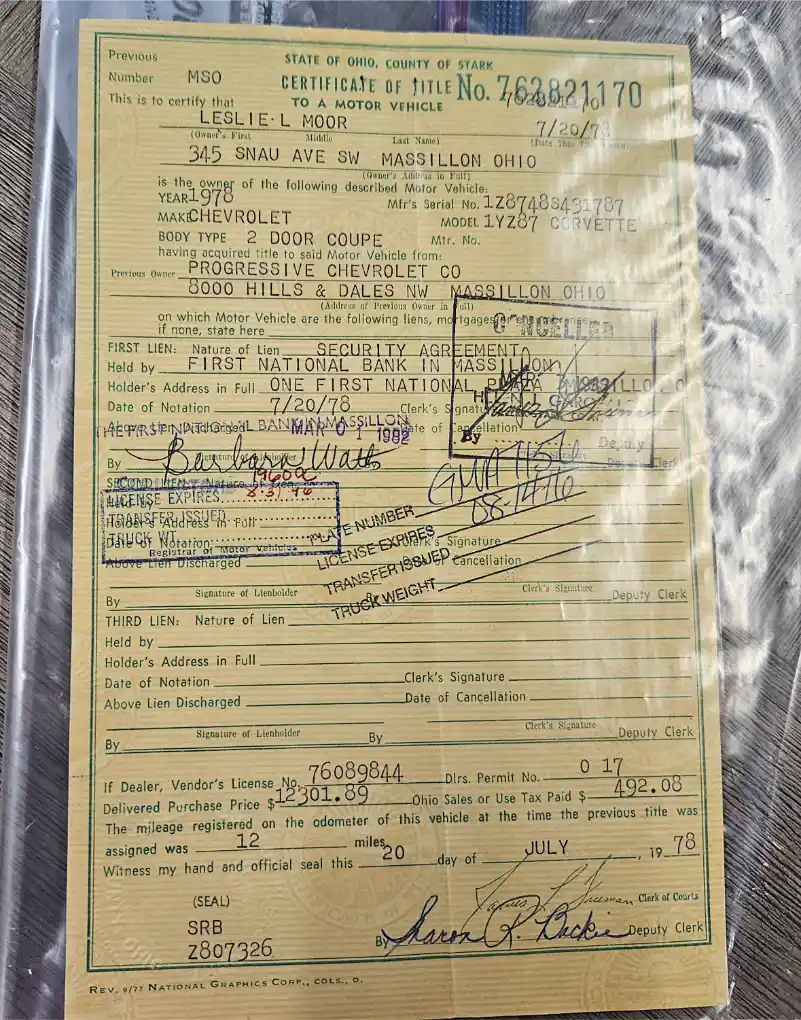 Previous STATE OF OHIO, COUNTY OF STARK
Number MSO CERTIFICATE OF TITLE No. 762821170
This is to certify that TO A MOTOR VEHICLE
LESLIE L MOOR 7/20/78
(Owner's First Middle Last Name)
345 SNAU AVE SW MASSILLON OHIO
(Owner's Address in Full)
is the owner of the following described Motor Vehicle:
YEAR 1978 Mfr's Serial No. 1Z8748S431787
MAKE CHEVROLET MODEL 1YZ87 CORVETTE
BODY TYPE 2 DOOR COUPE Mtr. No.
having acquired title to said Motor Vehicle from:
Previous Owner PROGRESSIVE CHEVROLET CO
8000 HILLS & DALES NW MASSILLON OHIO
(Address of Previous Owner in Full)
on which Motor Vehicle are the following liens, mortgages
if none, state here
CANCELLED
FIRST LIEN: Nature of Lien SECURITY AGREEMENT
Held by FIRST NATIONAL BANK IN MASSILLON
Holder's Address in Full ONE FIRST NATIONAL PLAZA MASSILLO O
Date of Notation 7/20/78 Clerk's Signature
Above Lien Discharged Date of Cancellation
THE FIRST NATIONAL BANK IN MASSILLON MAR 01 1982
By Deputy
By Barbara Watts Deputy Clerk
Signature of Lienholder
SECOND LIEN: Nature of Lien
Held by
LICENSE EXPIRES 8-31-96
TRANSFER ISSUED
Holder's Address in Full
TRUCK WT.
Date of Notation Clerk's Signature
Registrar of Motor Vehicles
Above Lien Discharged Cancellation
PLATE NUMBER GMA 7150
LICENSE EXPIRES 08-14-16
TRANSFER ISSUED
TRUCK WEIGHT
Signature of Lienholder Clerk's Signature
By By Deputy Clerk
THIRD LIEN: Nature of Lien
Held by
Holder's Address in Full
Date of Notation Clerk's Signature
Above Lien Discharged Date of Cancellation
Signature of Lienholder Clerk's Signature
By By Deputy Clerk
If Dealer, Vendor's License No. 76089844 Dlrs. Permit No. O 17
Delivered Purchase Price $12301.89 Ohio Sales or Use Tax Paid $ 492.08
The mileage registered on the odometer of this vehicle at the time the previous title was
assigned was 12 miles
Witness my hand and official seal this 20 day of JULY, 1978
Clerk of Courts
(SEAL)
SRB
By Sharon R. Backie Deputy Clerk
Z807326
REV. 9/77 NATIONAL GRAPHICS CORP., COLS., O.